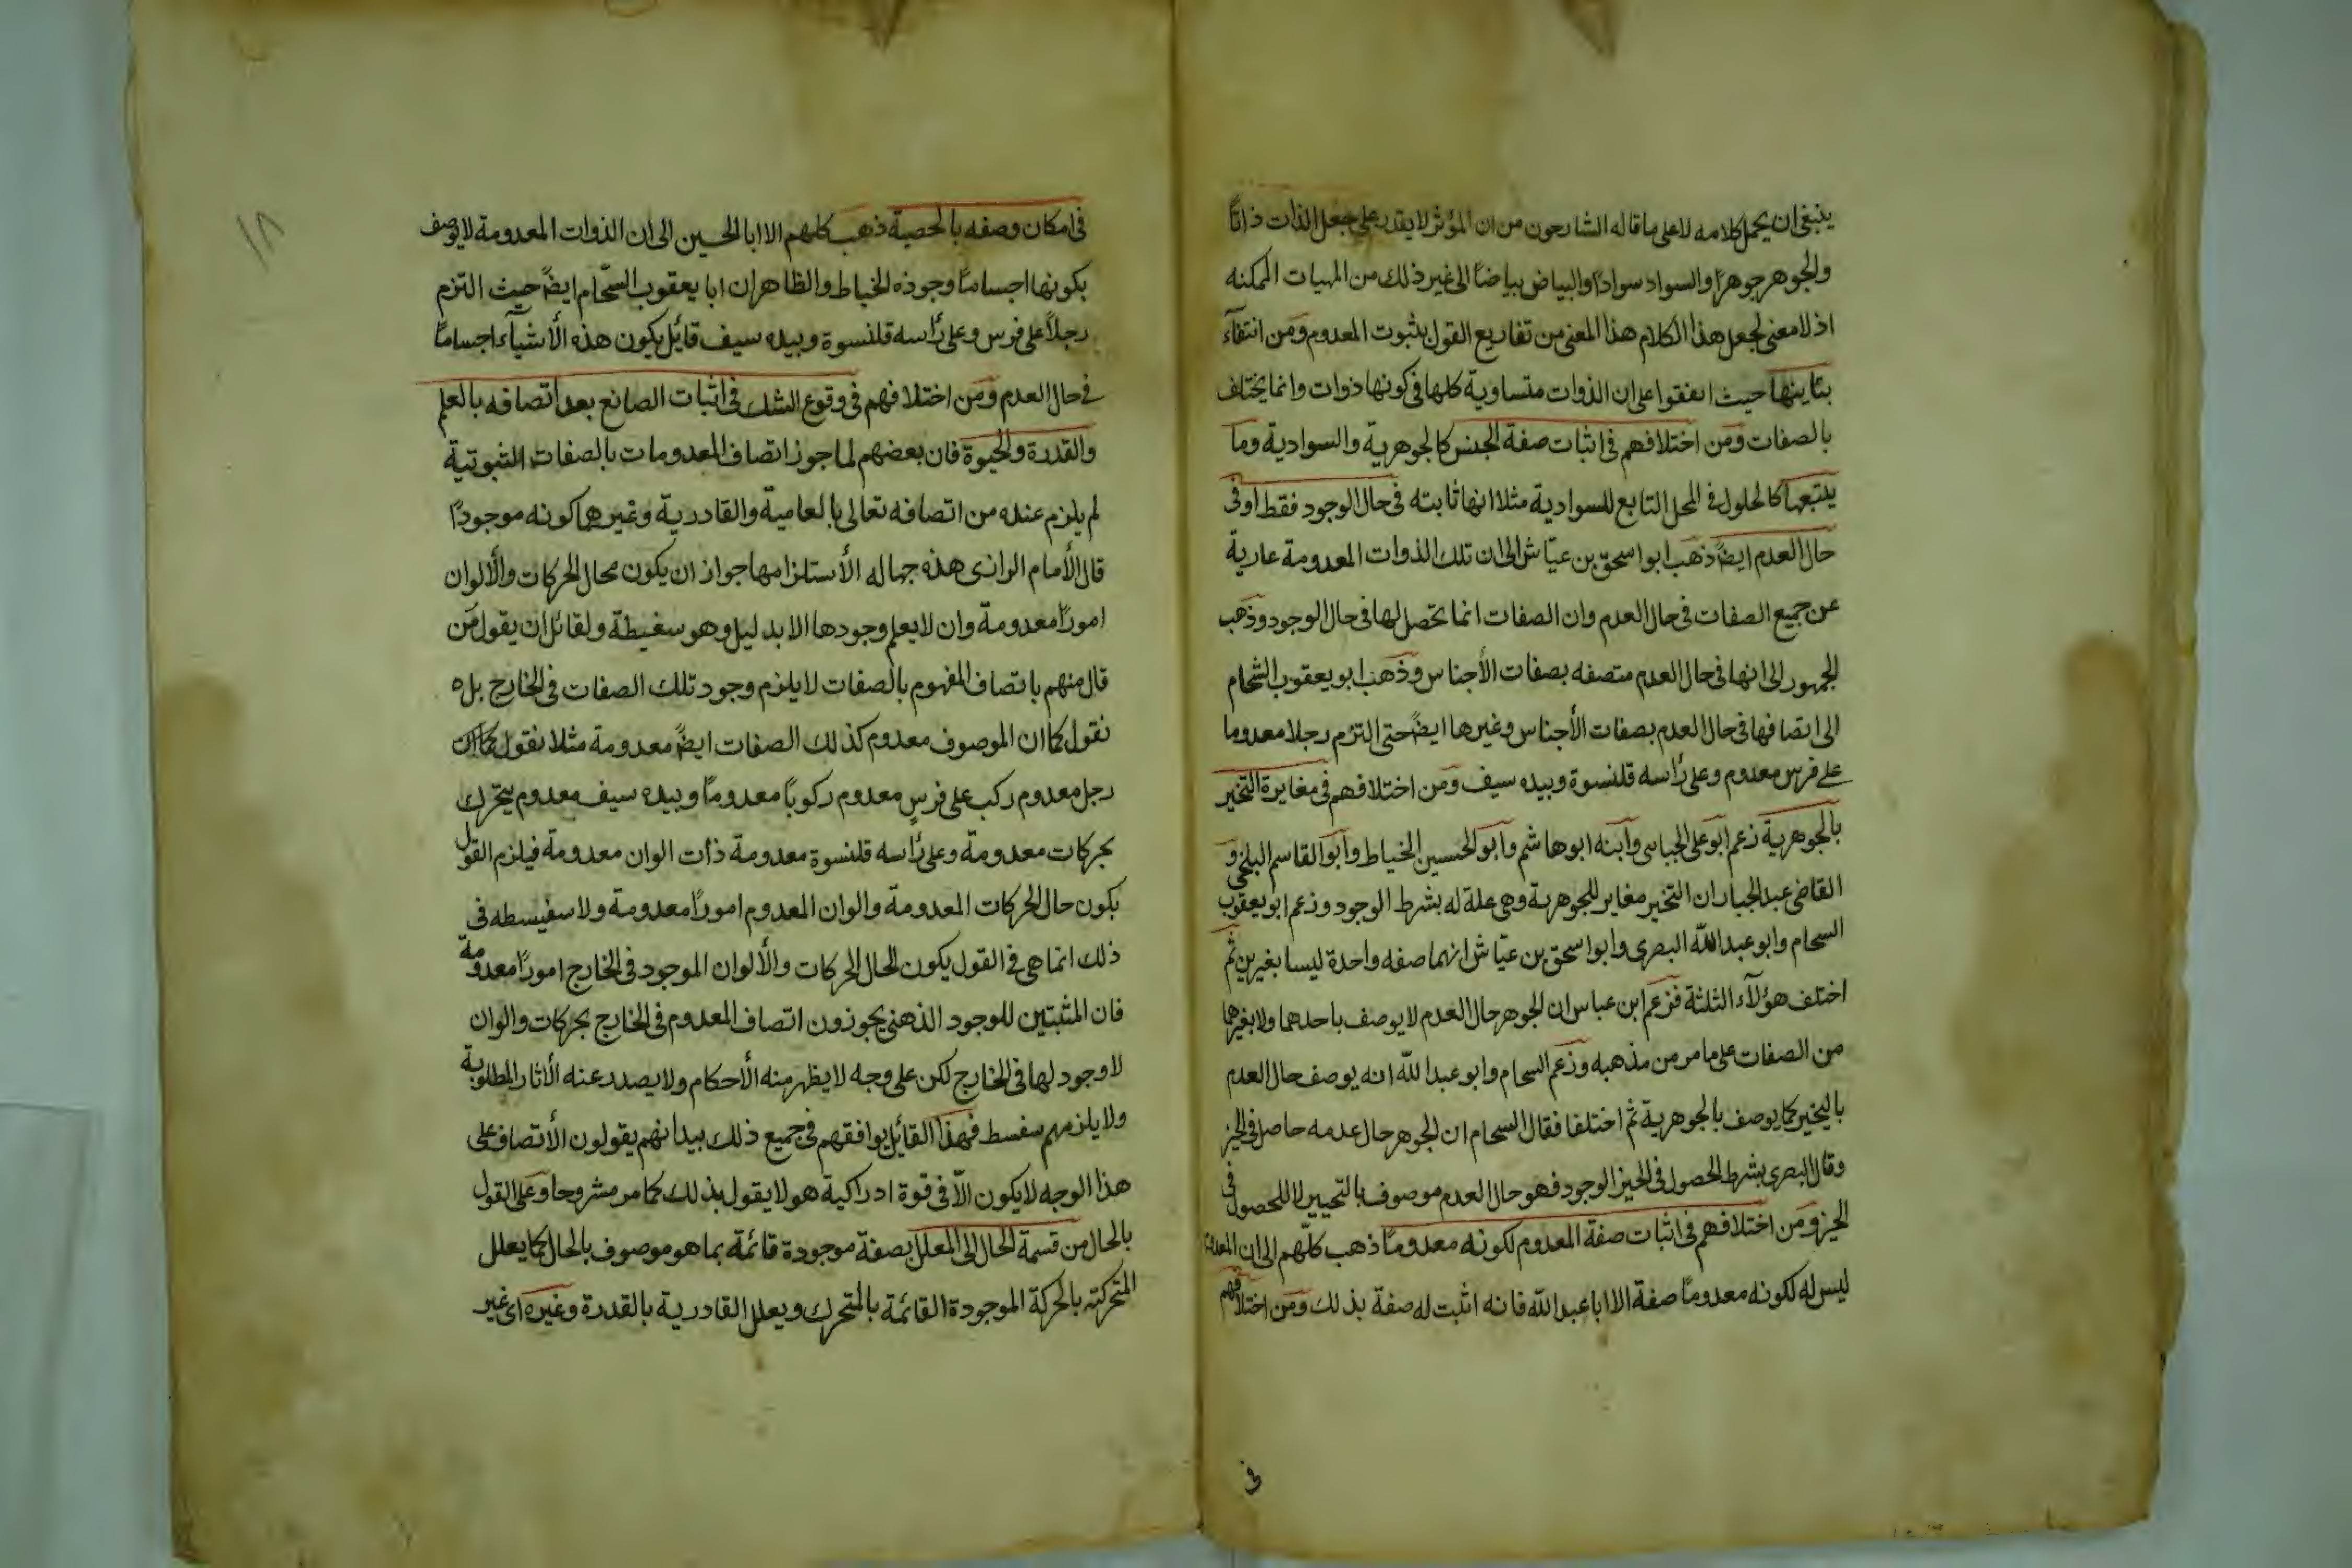 ينبغى ان يحمل كلامه لا على ما قاله الشارحون من ان المؤثر لا يقدر على جعل الذات ذاتاً
والجوهر جوهراً والسواد سواداً والبياض بياضاً الى غير ذلك من المهيات الممكنه
اذ لا معنى لجعل هذا الكلام هذا المعنى من تفاريع القول بثبوت المعدوم ومن انتفآء
تباينها حيث اتفقوا على ان الذوات متساوية كلها فى كونها ذوات وانما يختلف
بالصفات ومن اختلافهم فى اثبات صفة الجنس كالجوهرية والسوادية وما
يتبعها كالحلول فى المحل التابع للسوادية مثلا انها ثابته فى حال الوجود فقط او فى
حال العدم ايضاً ذهب ابو اسحق بن عيّاش الى ان تلك الذوات المعدومة عارية
عن جميع الصفات فى حال العدم وان الصفات انما تحصل لها فى حال الوجود وذهب
الجمهور الى انها فى حال العدم متصفه بصفات الأجناس وذهب ابو يعقوب الشحام
الى اتصافها فى حال العدم بصفات الأجناس وغيرها ايضاً حتى التزم رجلا معدوما
على فرس معدوم وعلى رأسه قلنسوة وبيده سيف ومن اختلافهم فى مغايرة التحيز
بالجوهرية زعم ابو على الجباى وابنه ابو هاشم وابو الحسين الخياط وابو القاسم البلخى و
القاضى عبد الجبار ان التحيز مغاير للجوهرية وهى علة له بشرط الوجود وزعم ابو يعقوب
السحام وابو عبد اللّه البصرى وابو اسحق بن عيّاش انهما صفه واحدة ليسا بغيرين ثم
اختلف هؤلآء الثلثة فزعم ابن عباس ان الجوهر حال العدم لا يوصف باحدهما ولا بغيرهما
من الصفات على ما مر من مذهبه وزعم السحام وابو عبد اللّه انه يوصف حال العدم
بالتحيز كما يوصف بالجوهرية ثم اختلفا فقال السحام ان الجوهر حال عدمه حاصل فى الحيز
وقال البصرى بشرط الحصول فى الحيز الوجود فهو حال العدم موصوف بالتحييز لا للحصول فى
الحيز ومن اختلافهم فى اثبات صفة المعدوم لكونه معدوماً ذهب كلّهم الى ان المعدوم
ليس له لكونه معدوماً صفة الا ابا عبد اللّه فانه اثبت له صفة بذلك ومن اختلافهم
فى
١٨
فى امكان وصفه بالجسمية ذهب كلهم الا ابا الحسين الى ان الذوات المعدومة لا يوصف
بكونها اجساماً وجوزه الخياط والظاهر ان ابا يعقوب السحّام ايضاً حيث التزم
رجلاً على فرس وعلى رأسه قلنسوة وبيده سيف قائل بكون هذه الأشيآء اجساماً
فى حال العدم ومن اختلافهم فى وقوع الشك فى اثبات الصانع بعد اتصافه بالعلم
والقدرة والحيوة فان بعضهم لما جوز اتصاف المعدومات بالصفات الثبوتية
لم يلزم عنده من اتصافه تعالى بالعامية والقادرية وغيرها كونه موجوداً
قال الأمام الرازى هذه جهاله الأستلزامها جواز ان يكون محال الحركات والألوان
اموراً معدومة وان لا يعلم وجودها الا بدليل وهو سفسطة ولقائل ان يقول من
قال منهم باتصاف المفهوم بالصفات لا يلزم وجود تلك الصفات فى الخارج بل ه
نقول كما ان الموصوف معدوم كذلك الصفات ايضاً معدومة مثلا نقول كما ان
رجل معدوم ركب على فرسٍ معدوم ركوباً معدوماً وبيده سيف معدوم يتحرك
بحركات معدومة وعلى رأسه قلنسوة معدومة ذات الوان معدومة فيلزم القول
بكون حال الحركات المعدومة والوان المعدوم اموراً معدومة ولا سفيسطه فى
ذلك انما هى فى القول بكون المحال الحركات والألوان الموجود فى الخارج اموراً معدومة
فان المثبتين للوجود الذهنى يجوزون اتصاف المعدوم فى الخارج بحركات والوان
لا وجود لها فى الخارج لكن على وجه لا يظهر منه الأحكام ولا يصدر عنه الأثار المطلوبة
ولا يلزمهم سفسط فهذا القائل يوافقهم فى جميع ذلك بيد انهم يقولون الأتصاف على
هذا الوجه لا يكون الاّ فى قوة ادراكية هو لا يقول بذلك كما مر مشروحا وعلى القول
بالحال من قسمة الحال الى المعلل بصفة موجودة قائمة بما هو موصوف بالحال كما يعلل
المتحركته بالحركة الموجودة القائمة بالمتحرك ويعلل القادرية بالقدرة وغيره اى غير